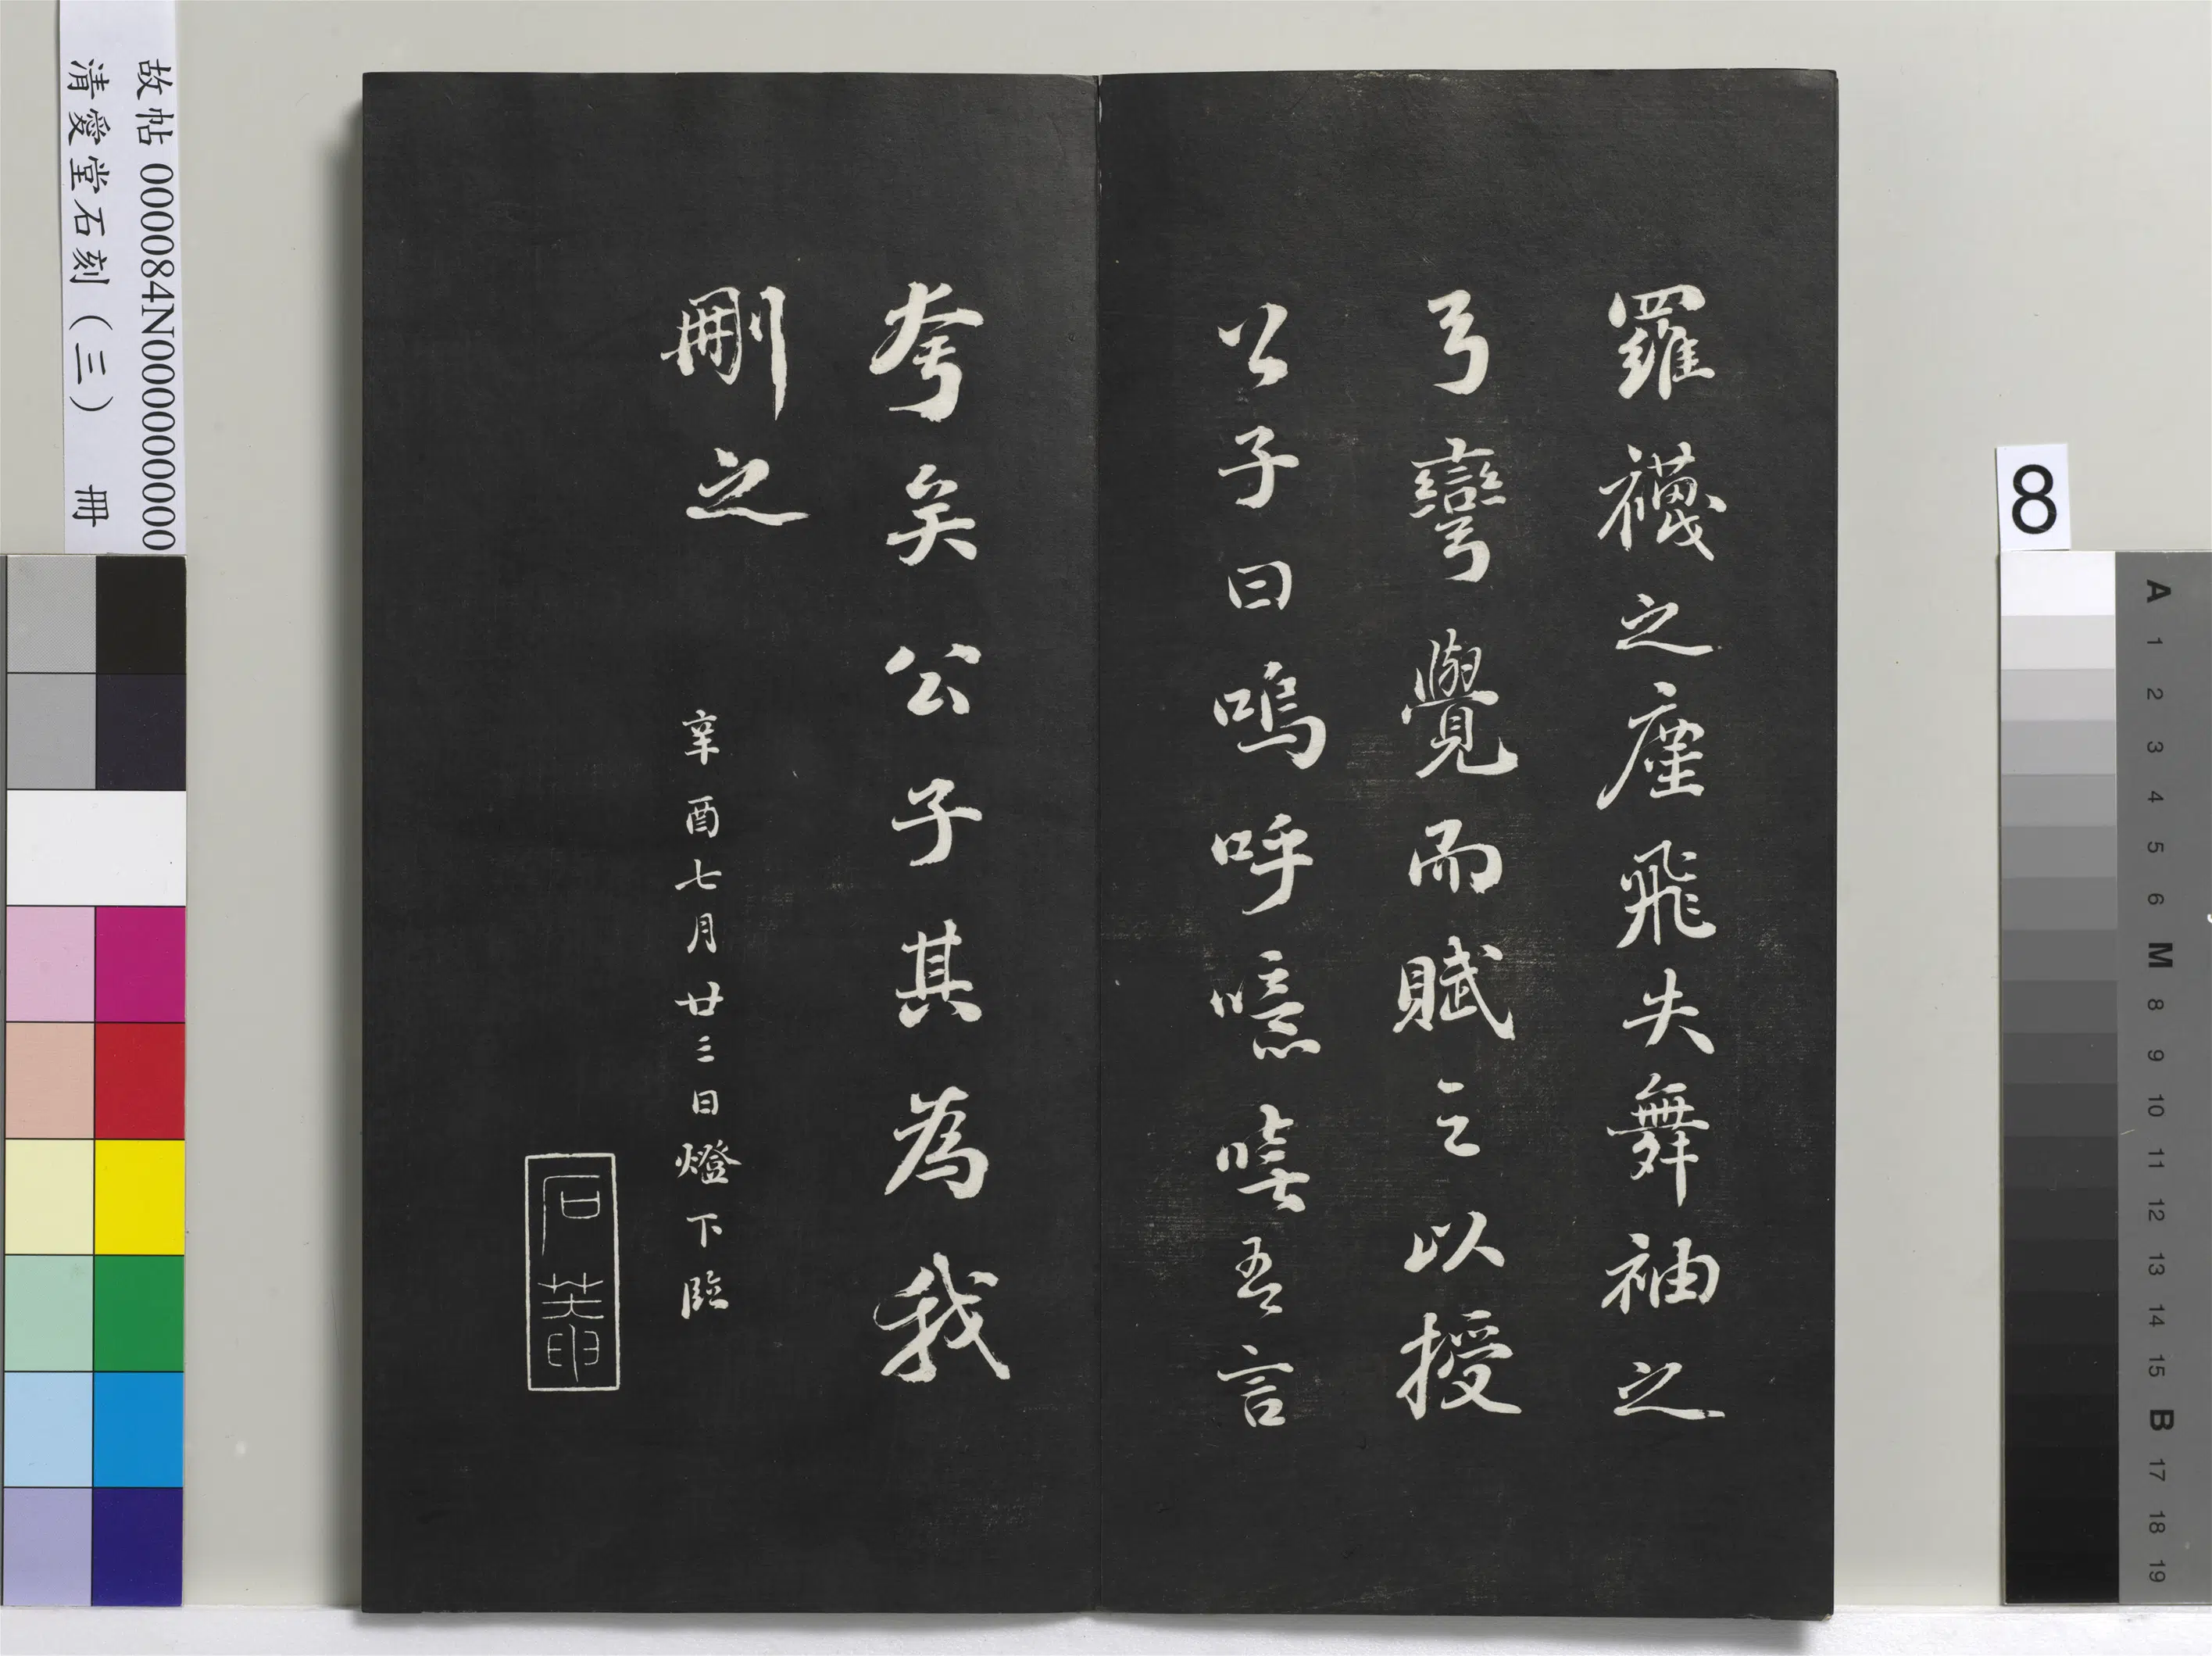 羅襪之塵飛失舞袖之
弓彎覺而賦之以授
公子曰嗚呼噫嘻吾言
夸矣公子其為我
刪之
辛酉七月廿三日燈下臨
石菴
故帖 000084N000000000
清愛堂石刻(三) 冊
8
A
1
2
3
4
5
6
M
8
9
10
11
12
13
14
15
B
17
18
19